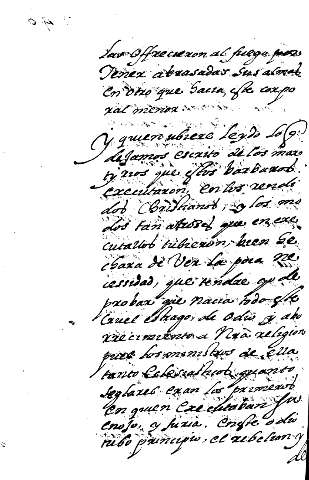 las offrecieron al fuego por
tener abrasadas sus almas
en otro que hacia este corpo
ral menor
Y quien ubiere leydo lo q.
dejamos escrito de los mar
tyrios que estos barbaros
executaron en los rendi
dos Christianos, y los mo
dos tan atroses que en exe
cutallos tubieron, bien he
chara de ver la poca ne
cessidad, que tendre yo de
probar que nacia todo este
cruel estrago, de odio y abo
rrecimiento a Nra religion
pues los ministros de ella
tanto eclesiasticos, quanto
seglares eran los primeros
en quien executaban su
enojo, y furia. En este odio
tubo principio, el rebelion y
de